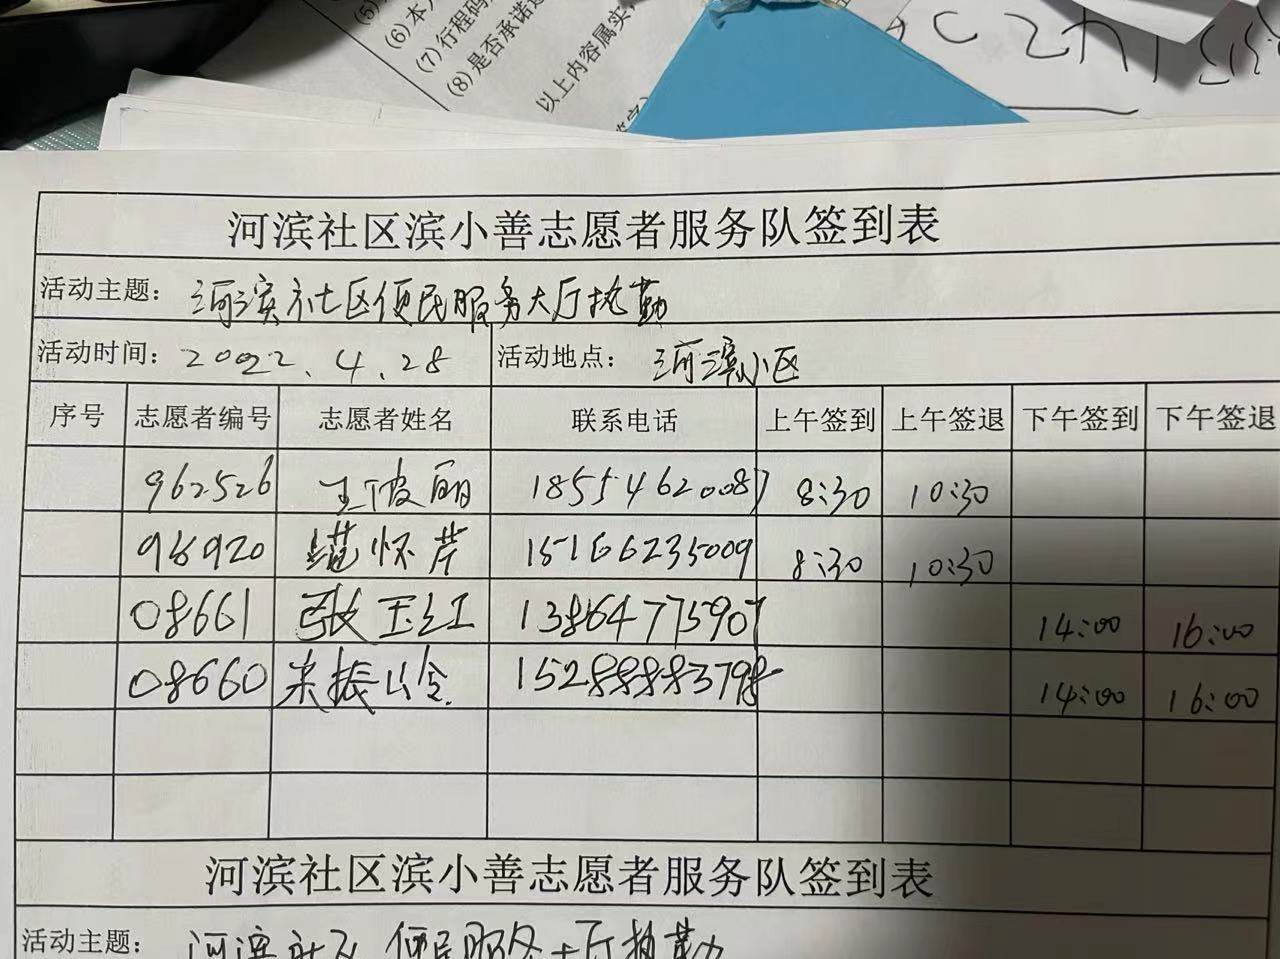 (5)
(6)本人
(7)行程码
(8)是否承诺
以上内容属实
河滨社区滨小善志愿者服务队签到表
活动主题: 河滨社区便民服务大厅执勤
活动时间: 2022.4.28 活动地点: 河滨小区
序号 志愿者编号 志愿者姓名 联系电话 上午签到 上午签退 下午签到 下午签退
962526 王俊丽 18554620087 8:30 10:30
怀芹 15166235009 8:30 10:30
08661 张玉红 13864775907 14:00 16:00
08660 米振 14:00 16:00
河滨社区滨小善志愿者服务队签到表
活动主题: 河滨社区便民服务大厅执勤